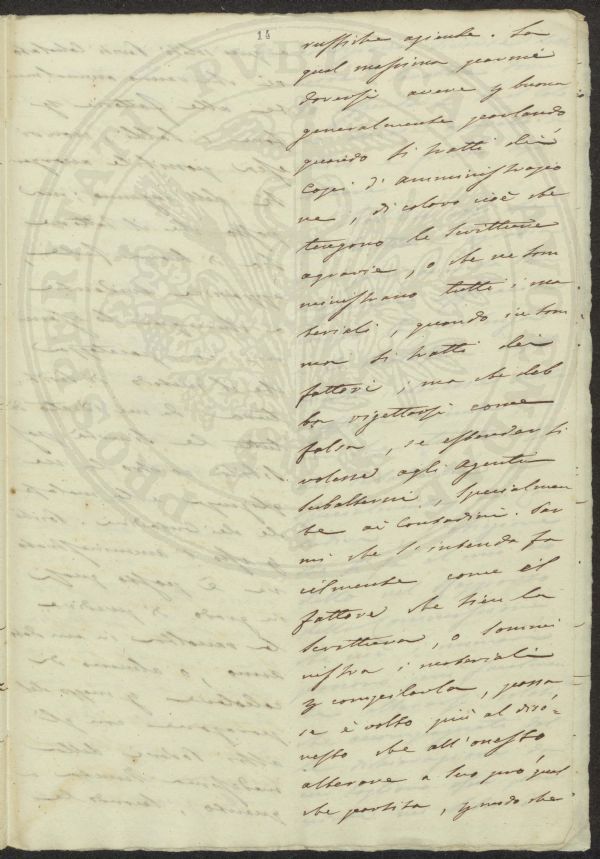 14
rustiche aziende. La
qual massima parmi
doversi avere p buona
generalmente parlando
quando si tratti dei
Capi d'amministrazio
ne, di coloro cioè che
tengono le scritture
agrarie, o che ne som
ministrano tutti i ma
teriali, quando in som
ma si tratti dei
fattori; ma che deb
ba rigettarsi come
falsa, se estender si
volesse agli Agenti
subalterni, specialmen
te ai Contadini. Par
mi che s'intenda fa
cilmente come il
fattore che tien la
scrittura, o sommi
nistra i materiali
p compilarla, possa
se è volto più al diso
nesto che all'onesto
alterare a suo pro qual
che partita, p modo che